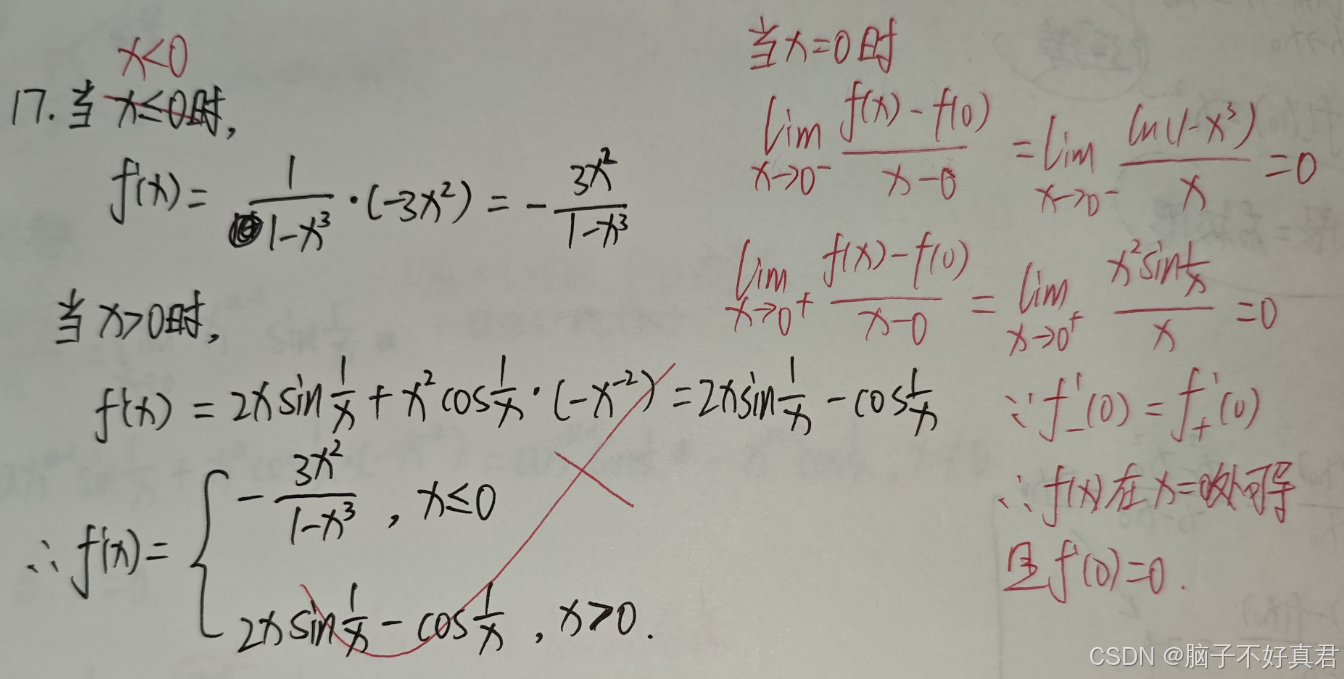 x<0
17. 当 x≤0时,
f'(x) = 1/(1-x³) · (-3x²) = - 3x²/(1-x³)
当 x>0时,
f'(x) = 2x sin 1/x + x² cos 1/x · (-x⁻²) = 2x sin 1/x - cos 1/x
∴ f'(x) = { - 3x²/(1-x³) , x≤0
2x sin 1/x - cos 1/x , x>0.
当 x=0 时
lim x→0⁻ (f(x)-f(0))/(x-0) = lim x→0⁻ ln(1-x³)/x = 0
lim x→0⁺ (f(x)-f(0))/(x-0) = lim x→0⁺ (x² sin 1/x)/x = 0
∵ f'₋(0) = f'₊(0)
∴ f(x) 在 x=0处可导
且 f'(0)=0.
CSDN @脑子不好真君